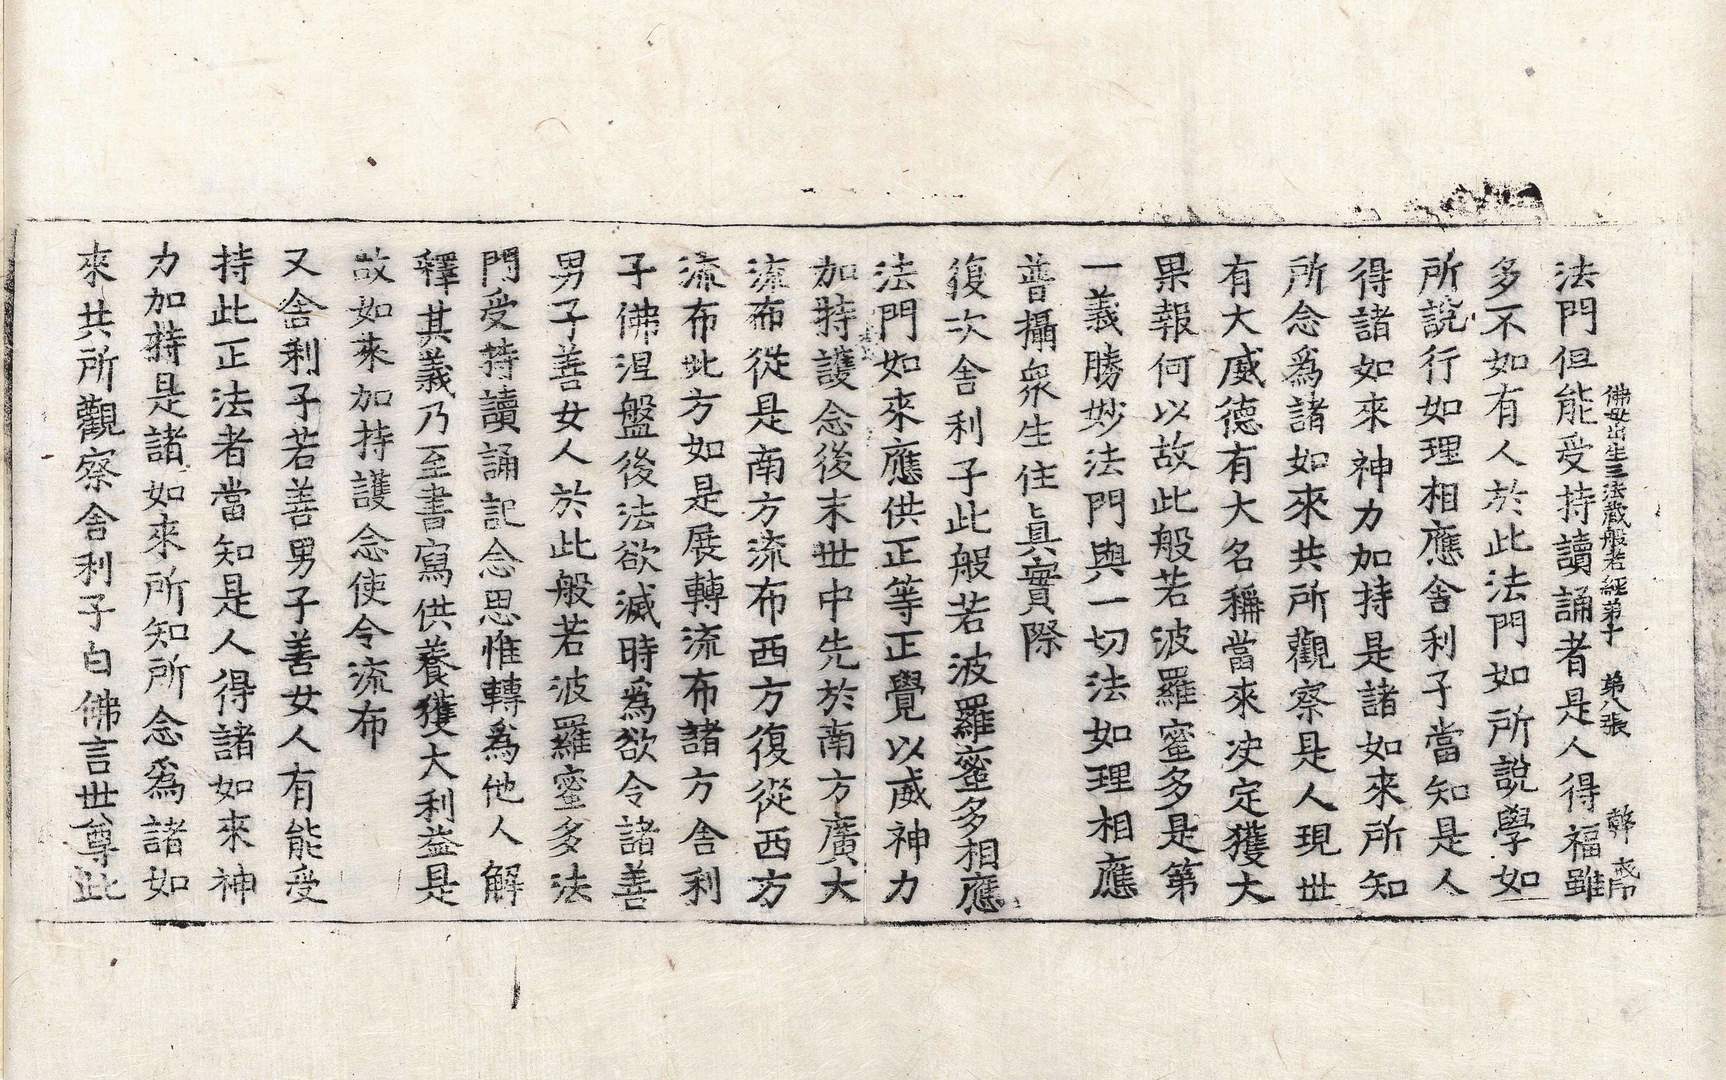 佛母出生三法藏般若經第十　第八張　弊　戒印
法門但能受持讀誦者是人得福雖
多不如有人於此法門如所說學如
所說行如理相應舍利子當知是人
得諸如來神力加持是諸如來所知
所念爲諸如來共所觀察是人現世
有大威德有大名稱當來決定獲大
果報何以故此般若波羅蜜多是第
一義勝妙法門與一切法如理相應
普攝衆生住眞實際
復次舍利子此般若波羅蜜多相應
法門如來應供正等正覺以威神力
加持護念後末世中先於南方廣大
流布從是南方流布西方復從西方
流布北方如是展轉流布諸方舍利
子佛涅盤後法欲滅時爲欲令諸善
男子善女人於此般若波羅蜜多法
門受持讀誦記念思惟轉爲他人解
釋其義乃至書寫供養獲大利益是
故如來加持護念使令流布
又舍利子若善男子善女人有能受
持此正法者當知是人得諸如來神
力加持是諸如來所知所念爲諸如
來共所觀察舍利子白佛言世尊此